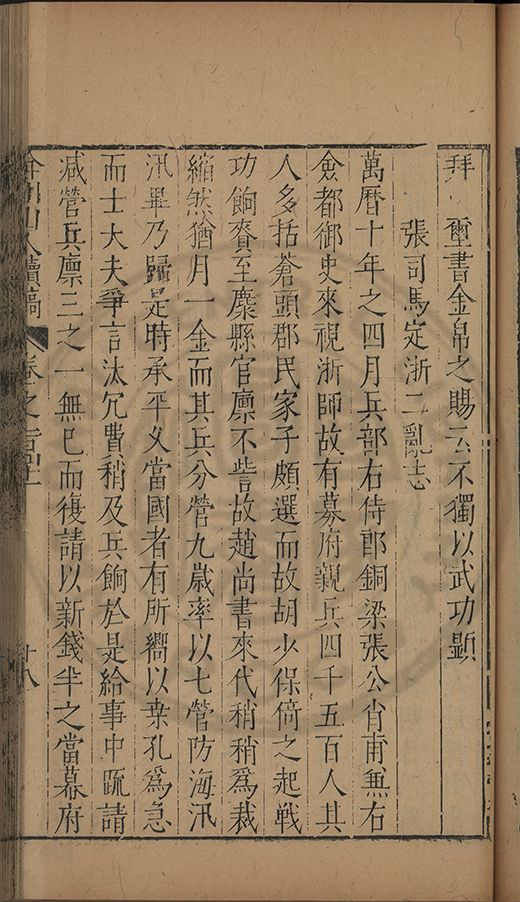 拜　璽書金帛之賜云不獨以武功顯
張司馬定浙二亂志
萬曆十年之四月兵部右侍郎銅梁張公肖甫兼右
僉都御史來視浙師故有幕府親兵四千五百人其
人多括蒼頭郡民家子頗選而故胡少保倚之起戰
功餉賚至麋縣官廩不訾故趙尚書來代稍稍爲裁
縮然猶月一金而其兵分營九歲率以七營防海汛
汛畢乃歸是時承平乆當國者有所嚮以桒孔爲急
而士大夫爭言汰冗費稍及兵餉於是給事中疏請
减營兵廪三之一無已而復請以新錢半之當幕府
弇州山人續稿　卷之百四十　廿八